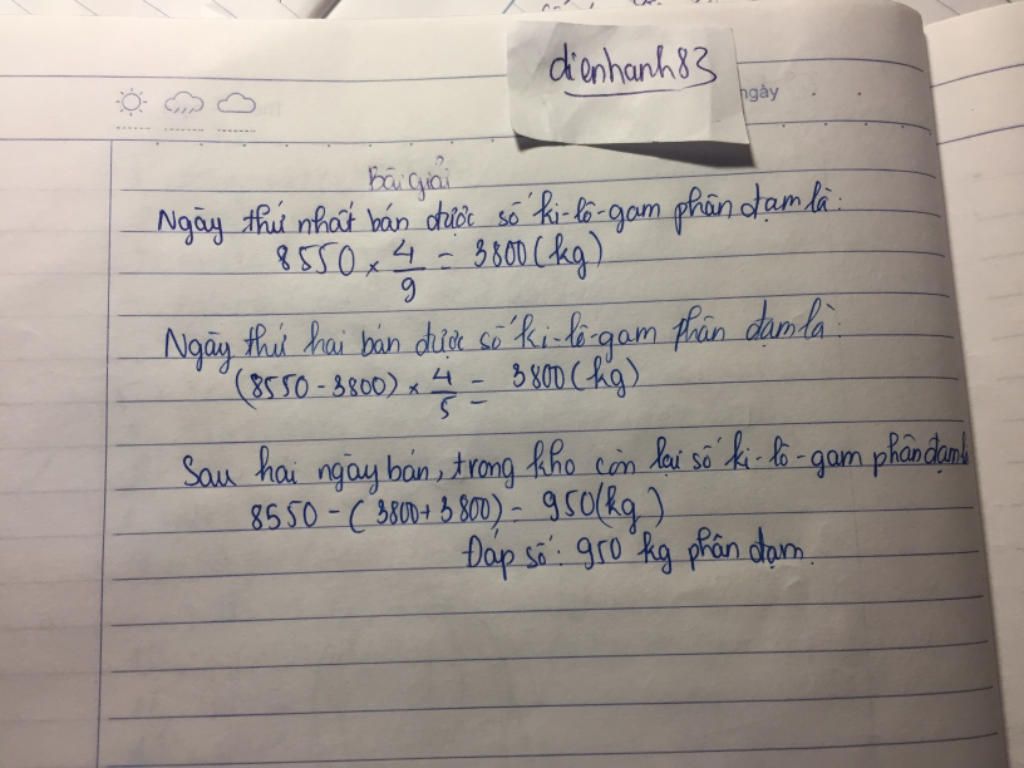 dienhanh83
ngày
Bài giải
Ngày thứ nhất bán được số ki-lô-gam phân đạm là:
8550 × 4/9 = 3800 (kg)
Ngày thứ hai bán được số ki-lô-gam phân đạm là:
(8550 - 3800) × 4/5 = 3800 (kg)
Sau hai ngày bán, trong kho còn lại số ki-lô-gam phân đạm
8550 - (3800 + 3800) = 950 (kg)
Đáp số: 950 kg phân đạm.